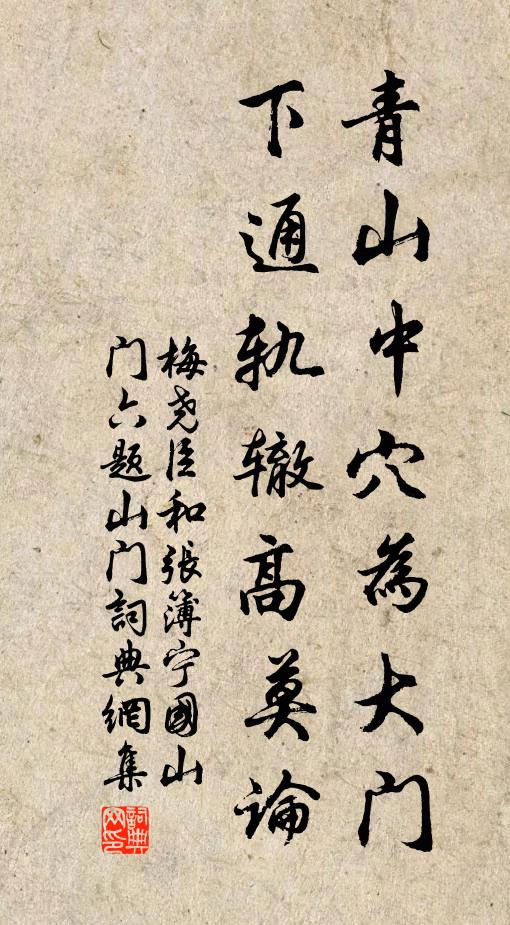 青山中穴為大门
下通轨辙高莫论
梅尧臣和張簿宁國山
门六题山门詞典網集
詞典网印